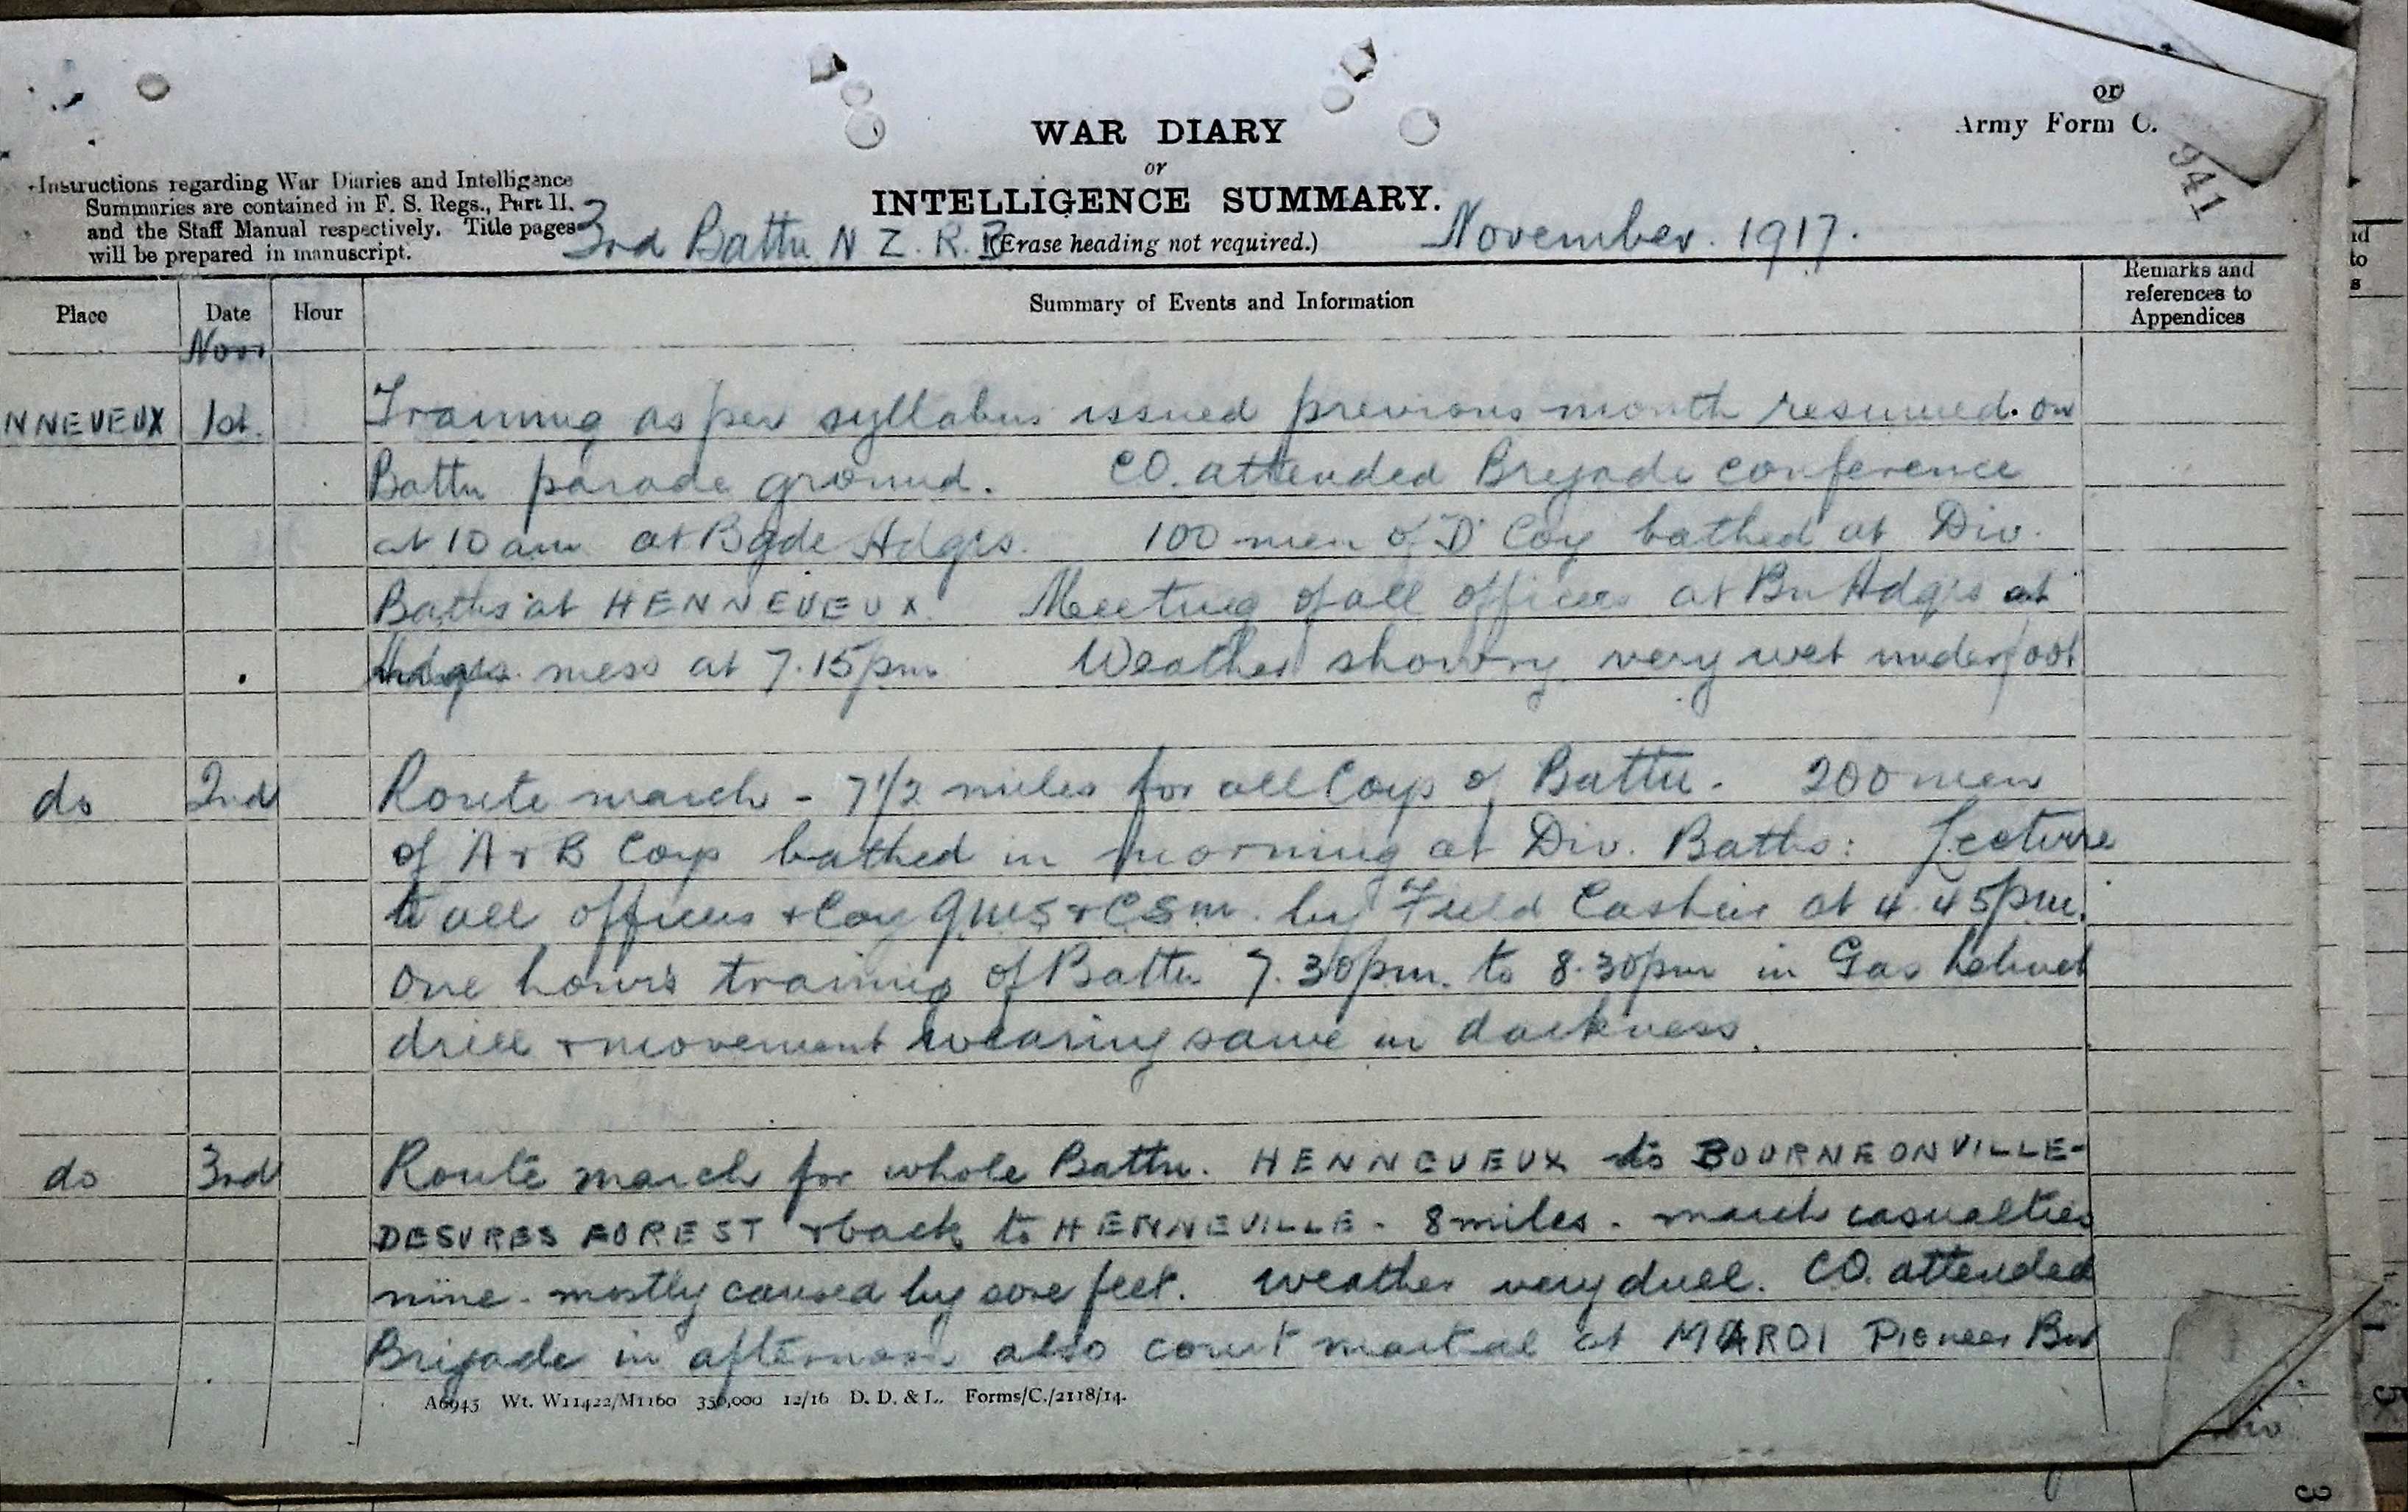 or
Army Form C.
941
WAR DIARY
or
INTELLIGENCE SUMMARY.
(Erase heading not required.)
Instructions regarding War Diaries and Intelligence
Summaries are contained in F. S. Regs., Part II.
and the Staff Manual respectively. Title pages
will be prepared in manuscript.
3rd Battn N Z. R. B
November. 1917.
Place Date Hour Summary of Events and Information Remarks and references to Appendices
Nov
NNEVEUX 1st. Training as per syllabus issued previous month resumed on
Battn parade ground. CO. attended Brigade conference
at 10 am at Bgde Hdqrs. 100 men of D Coy bathed at Div.
Baths at HENNEVEUX. Meeting of all officers at Bn Hdqrs at
Hdqrs. mess at 7.15pm Weather showry very wet underfoot
do 2nd Route march - 7 1/2 miles for all Coys of Battn. 200 men
of A & B Coys bathed in morning at Div. Baths: Lecture
to all officers & Coy QMS & CSM. by Field Cashier at 4.45pm.
One hours training of Battn 7.30pm. to 8.30pm in Gas helmet
drill & movement wearing same in darkness.
do 3rd Route march for whole Battn. HENNEVEUX to BOURNEONVILLE-
DESVRES FOREST & back to HENNEVILLE - 8 miles. march casualties
nine - mostly caused by sore feet. Weather very dull. CO. attended
Brigade in afternoon also court martial at MAORI Pioneer Bn
A6945 Wt. W11422/M1160 350,000 12/16 D. D. & L. Forms/C./2118/14.